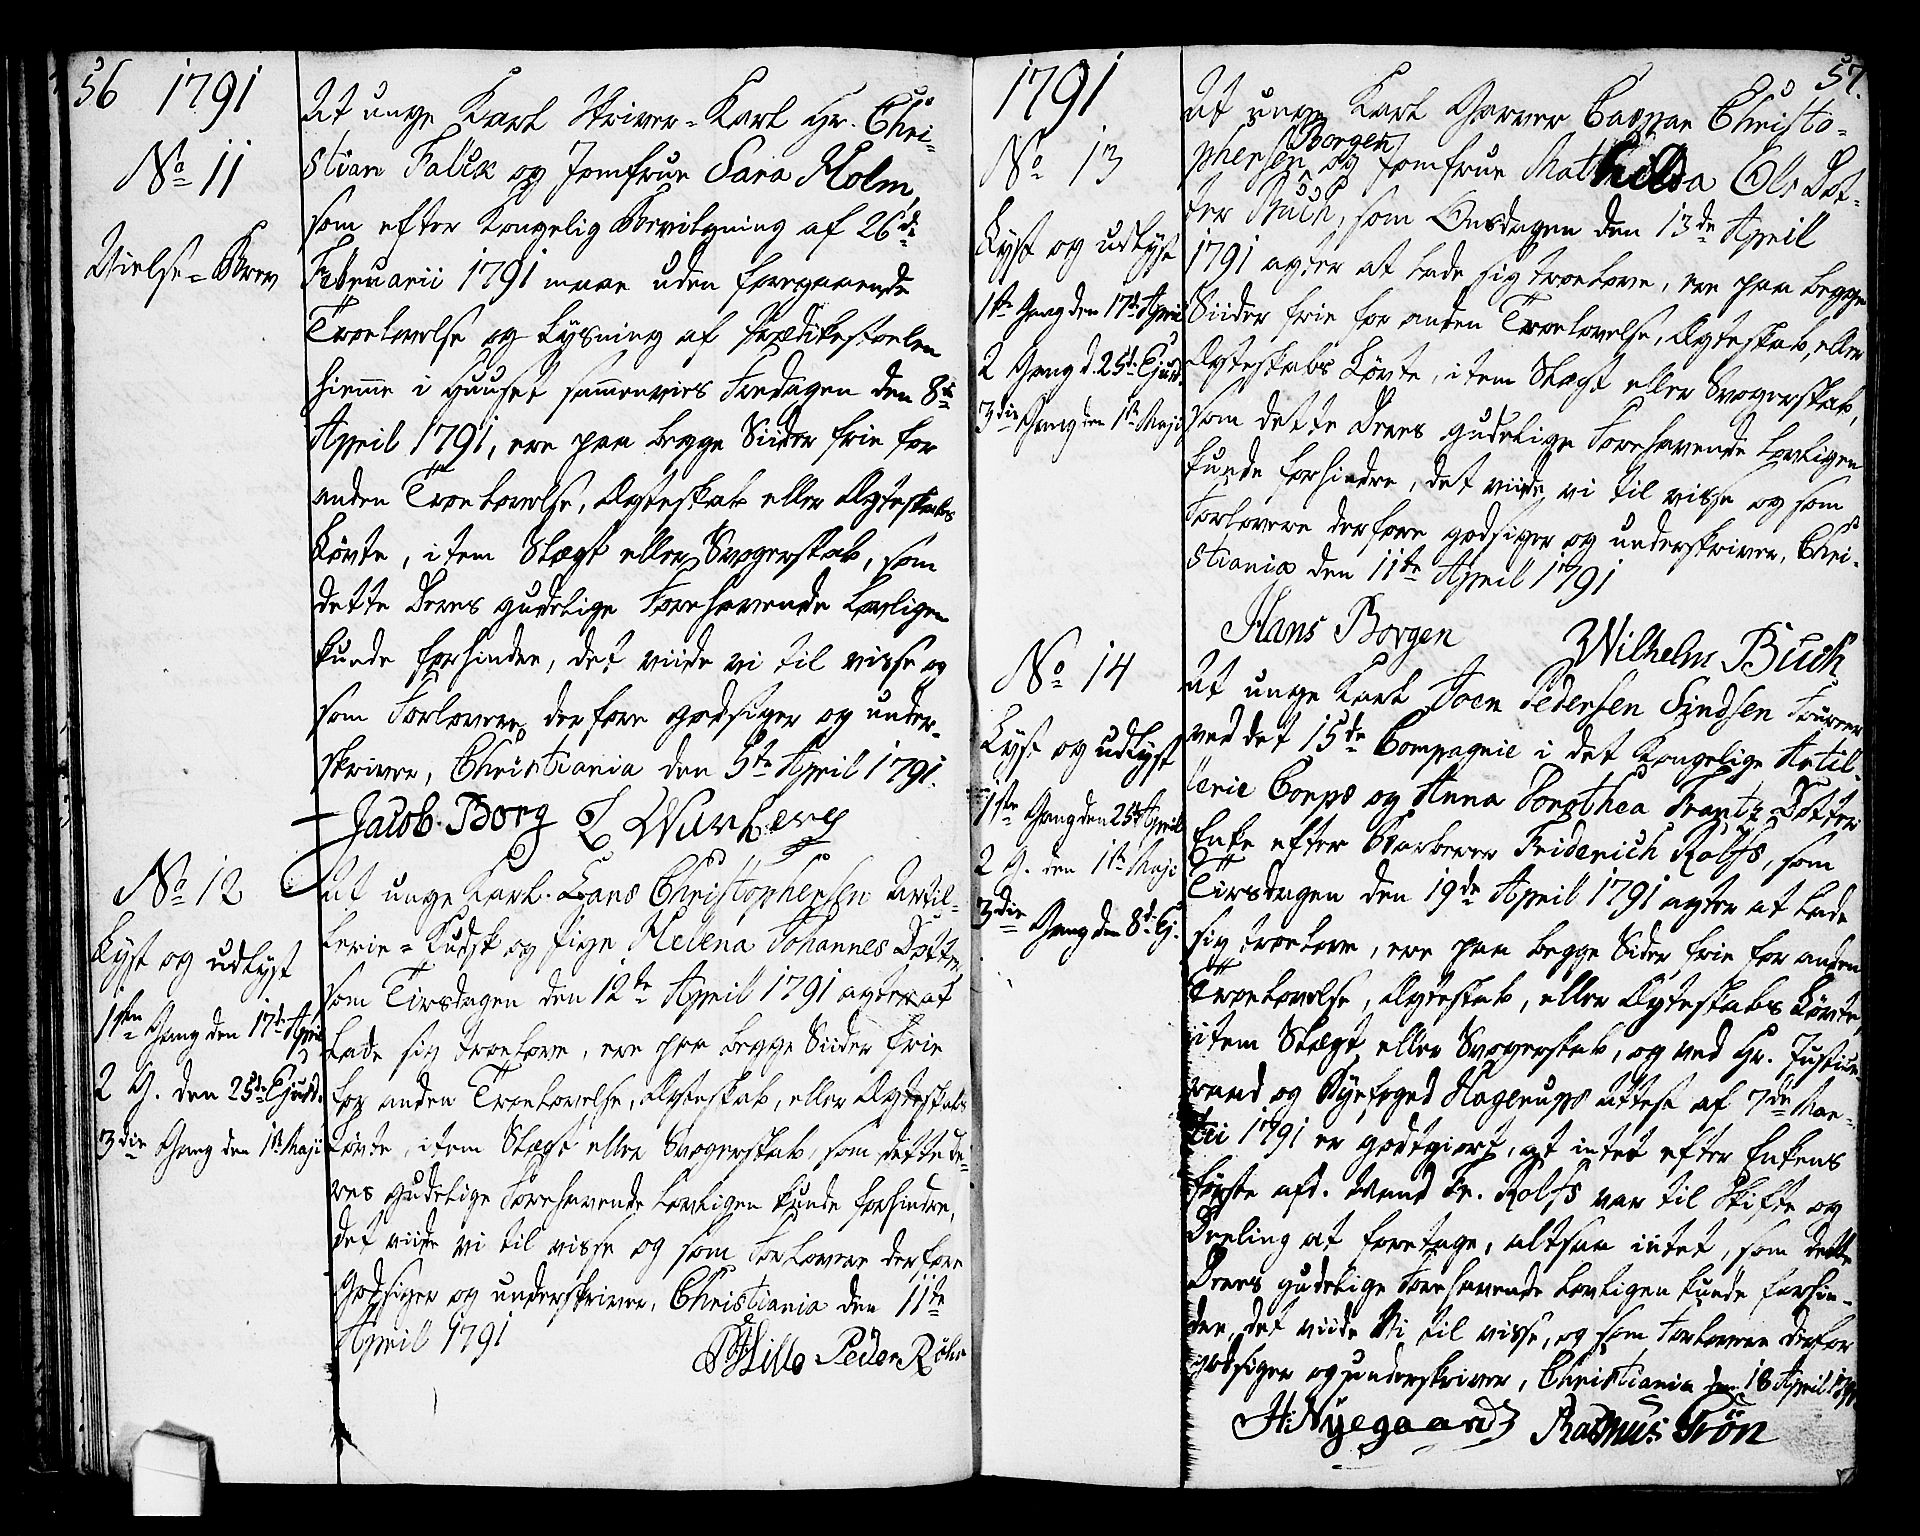 56 1791
No 11
Vielse=Brev
At unge Karl Skriver=Karl Hr. Chri-
stian Falck og Jomfrue Sara Holm,
som efter Kongelig Bevilgning af 26de
Februarii 1791 maae uden foregaaende
Troelovelse og Lysning af Prædikestoelen
hiemme i Huuset sammenvies Fredagen den 8de
April 1791, ere paa begge Siider frie for
anden Troelovelse, Ægteskab eller Ægteskabs
Løvte, item Slægt eller Svogerskab, som
dette Deres gudelige Forehavende lovligen
kunde forhindre, det viide vi til visse og
som Forlovere derfore godsiger og under-
skriver, Christiania den 5te April 1791.
Jacob Borg
No 12
Lyst og udlyst
1ste Gang den 17de April
2 G. den 25de Ejusd.
3die Gang den 1te Maji
At unge Karl Hans Christophersen Artil-
lerie=Kudsk og Pige Helena Johannes Dotter,
som Tirsdagen den 12te April 1791 agter at
lade sig troelove, ere paa begge Siider frie
for anden Troelovelse, Ægteskab, eller Ægteskabs
Løvte, item Slægt eller Svogerskab, som dette De-
res gudelige Forehavende lovligen kunde forhindre,
det viide vi til visse og som Forlovere derfore
godsiger og underskriver, Christiania den 11te
April 1791
Hille Peder Röhr
1791 57.
No 13
Lyst og udlyst
1ste Gang den 17de April
2 Gang d. 25de Ejusd.
3die Gang den 1te Maji
At unge Karl Garver Caspar Christo-
phersen Borgen og Jomfrue Mathilda Ols Dot-
ter Buch, som Onsdagen den 13de April
1791 agter at lade sig troelove, ere paa begge
Siider frie for anden Troelovelse, Ægteskab, eller
Ægteskabs Løvte, item Slægt eller Svogerskab,
som dette Deres gudelige Forehavende lovligen
kunde forhindre, det viide vi til visse og som
Forlovere derfore godsiger og underskriver, Chri-
stiania den 11te April 1791
Hans Borgen Wilhelm Buch
No 14
Lyst og udlyst
1ste Gang den 25de April
2 G. den 1te Maji
3die Gang den 8de Ej.
At unge Karl Joen Pedersen Lindsen Fourer
ved det 15de Compagnie i det Kongelige Artil-
lerie Corps og Anna Dorothea Frantz Dotter
Enke efter Barberer Friderich Rolfs, som
Tirsdagen den 19de April 1791 agter at lade
sig troelove, ere paa begge Sider frie for anden
Troelovelse, Ægteskab, eller Ægteskabs Løvte,
item Slægt eller Svogerskab, og ved Hr. Justice-
raad og Byefoged Hagerups Attest af 7de Mar-
tii 1791 er godtgiort, at intet efter Enkens
første afd. Mand Fr. Rolfs var til Skifte og
Deeling at foretage, altsaa intet, som dette
Deres gudelige Forehavende lovligen kunde forhin-
dre, det viide Vi til visse, og som Forlovere derfor
godsiger og underskriver, Christiania den 18 April 1791
H: Nyegaard Rasmus Trön